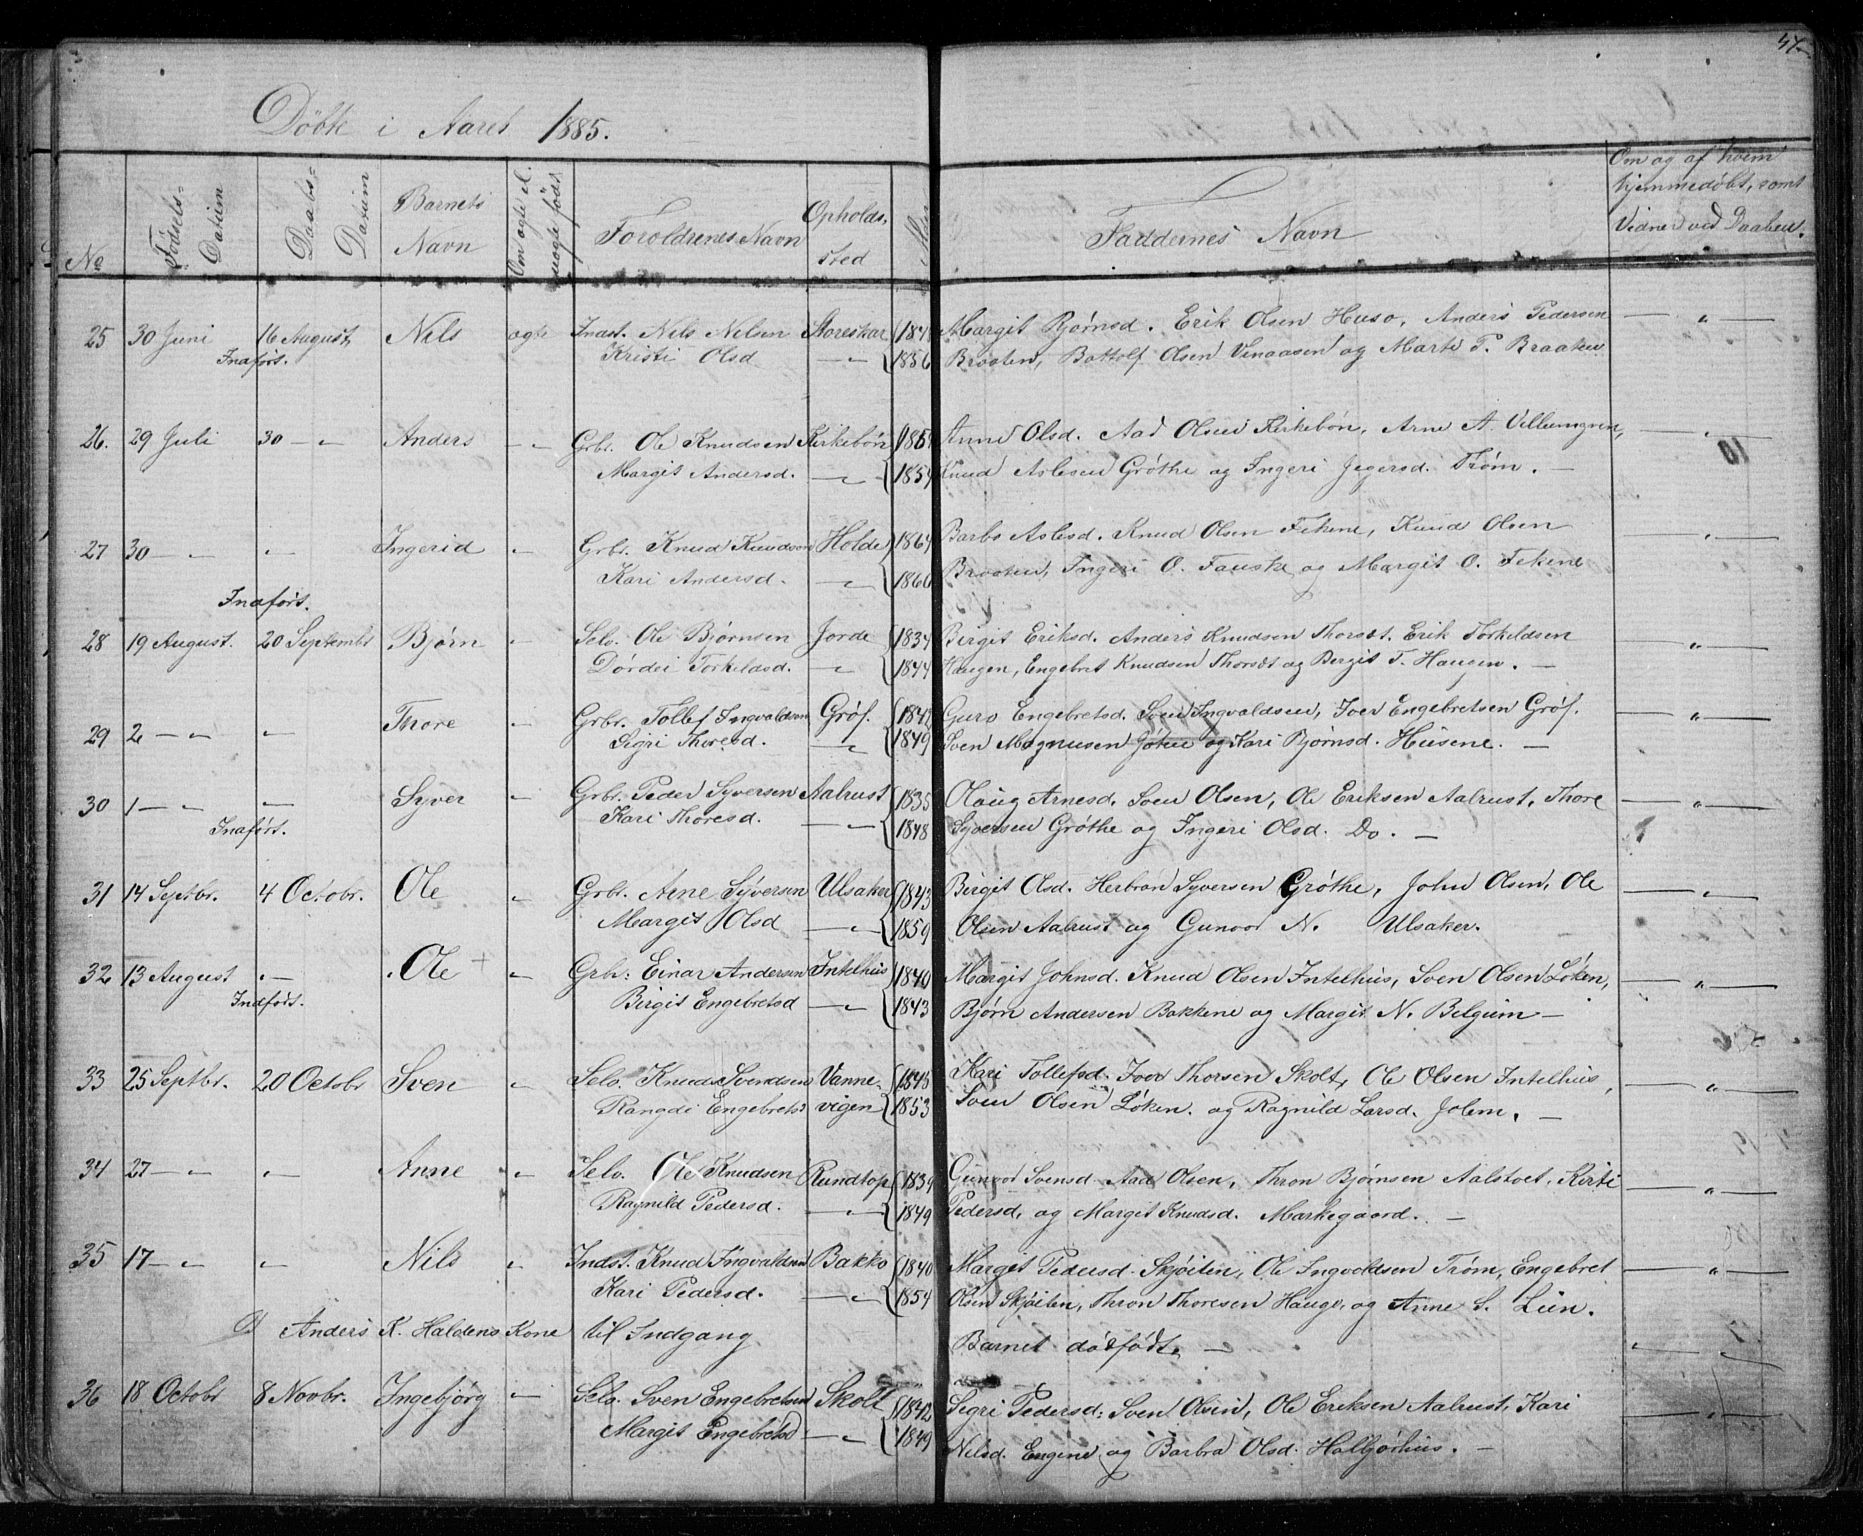 47.
Döbte i Aaret 1885.
No
Fødsels-
Datum
Daabs-
Datum
Barnets
Navn
Om ægte el.
uægte født
Forældrenes Navn
Opholds-
sted
Faddernes Navn
Om og af hvem
hjemmedøbt, samt
Vidner ved Daaben.
25 30 Juni 16 August Nils ægte Indst. Nils Nelsen Storeskar Margit Bjørnsd. Erik Olsen Huso, Anders Pedersen — " —
Indført. Kristi Olsd — " — 1856 Braaten, Bottolf Olsen Vinaasen og Marte P. Braaten
26. 29 Juli 30 — " Anders — " Grbr. Ole Knudsen Kirkebøn Anne Olsd. Aad Olsen Kirkebøn, Arne A. Villumgven, — " —
Margit Andersd. — " — 1854 Knud Aslesen Grøthe og Ingeri Jegersd. Trøm. — 10
27 30 — " " Ingerid " Grbr. Knud Knudsen Holde 1864 Barbo Aslesd. Knud Olsen Fekene, Knud Olsen — " —
Kari Andersd. " 1866 Braaten, Ingeri O. Fauske og Margit O. Fekene
Indført.
28 19 August. 20 Septembr Bjørn " Selv. Ole Bjørnsen Jorde 1834 Birgit Eriksd. Anders Knudsen Thorset. Erik Torkeldsen — " —
Dordei Torkeldsd. " 1844 Haugen, Engebret Knudsen Thorset og Bergit T. Haugen. —
29 2 — " " Thore " Grbr. Tollef Ingvaldsen Grøf. 1842 Guro Engebretsd. Sven Ingvaldsen, Iver Engebretsen Grøf. — " —
Sigri Thoresd. " 1849 Sven Magnusen Göten og Kari Bjørnsd. Husene. —
30 1 — " " Syver " Grbr. Peder Syversen Aalrust 1835 Olaug Arnesd. Sven Olsen, Ole Eriksen Aalrust, Thore — " —
Indført. Kari Thoresd. — " — 1848 Syversen Grøthe og Ingeri Olsd. Do. —
31 14 Septbr. 4 Octobr. Ole " Grbr. Arne Syversen Ulsaker 1843 Birgit Olsd. Herbran Syversen Grøthe, John Olsen, Ole — " —
Margit Olsd — " — 1859 Olsen Aalrust og Gunvor N. Ulsaker.
32 13 August " Ole + " Grbr. Einar Andersen Intelhus 1840 Margit Johnsd. Knud Olsen Intelhus, Sven Olsen Løken, — " —
Indført. Birgit Engebretsd — " — 1843 Bjørn Andersen Bakkene og Margit N. Belgum —
33 25 Septbr. 20 Octobr Sven " Selv. Knud Svendsen Vanne- 1845 Kari Tollefsd. Iver Thorsen Skolt, Ole Olsen Intelhus, — " —
Rangdi Engebretsd vigen 1853 Sven Olsen Løken. og Ragnild Larsd. Jolem. —
34 27 — " " Anne " Selv. Ole Knudsen Rundtop 1839 Gunvor Svensd. Aad Olsen, Thron Bjørnsen Aalstvet, Kirti — " —
Ragnild Pedersd. — " — 1849 Pedersd, og Margit Knudsd. Markegaard. —
35 17 — " " Nils " Indst. Knud Ingvaldsen Bakko 1840 Margit Pedersd. Skjøiten, Ole Ingvoldsen Trøm, Engebret — " —
Kari Pedersd. — " — 1854 Olsen Skjøiten, Thron Thoresen Hauge, og Anne S. Liin.
D Anders K. Haldens Kone til Indgang Barnet dødfødt. — " —
36 18 Octobr 8 Novbr. Ingebjørg " Selv. Sven Engebretsen Skolt 1842 Segri Pedersd: Sven Olsen, Ole Eriksen Aalrust, Kari — " —
Margit Engebretsd — " — 1849 Nilsd. Engene og Barbra Olsd. Halbjørhus. —